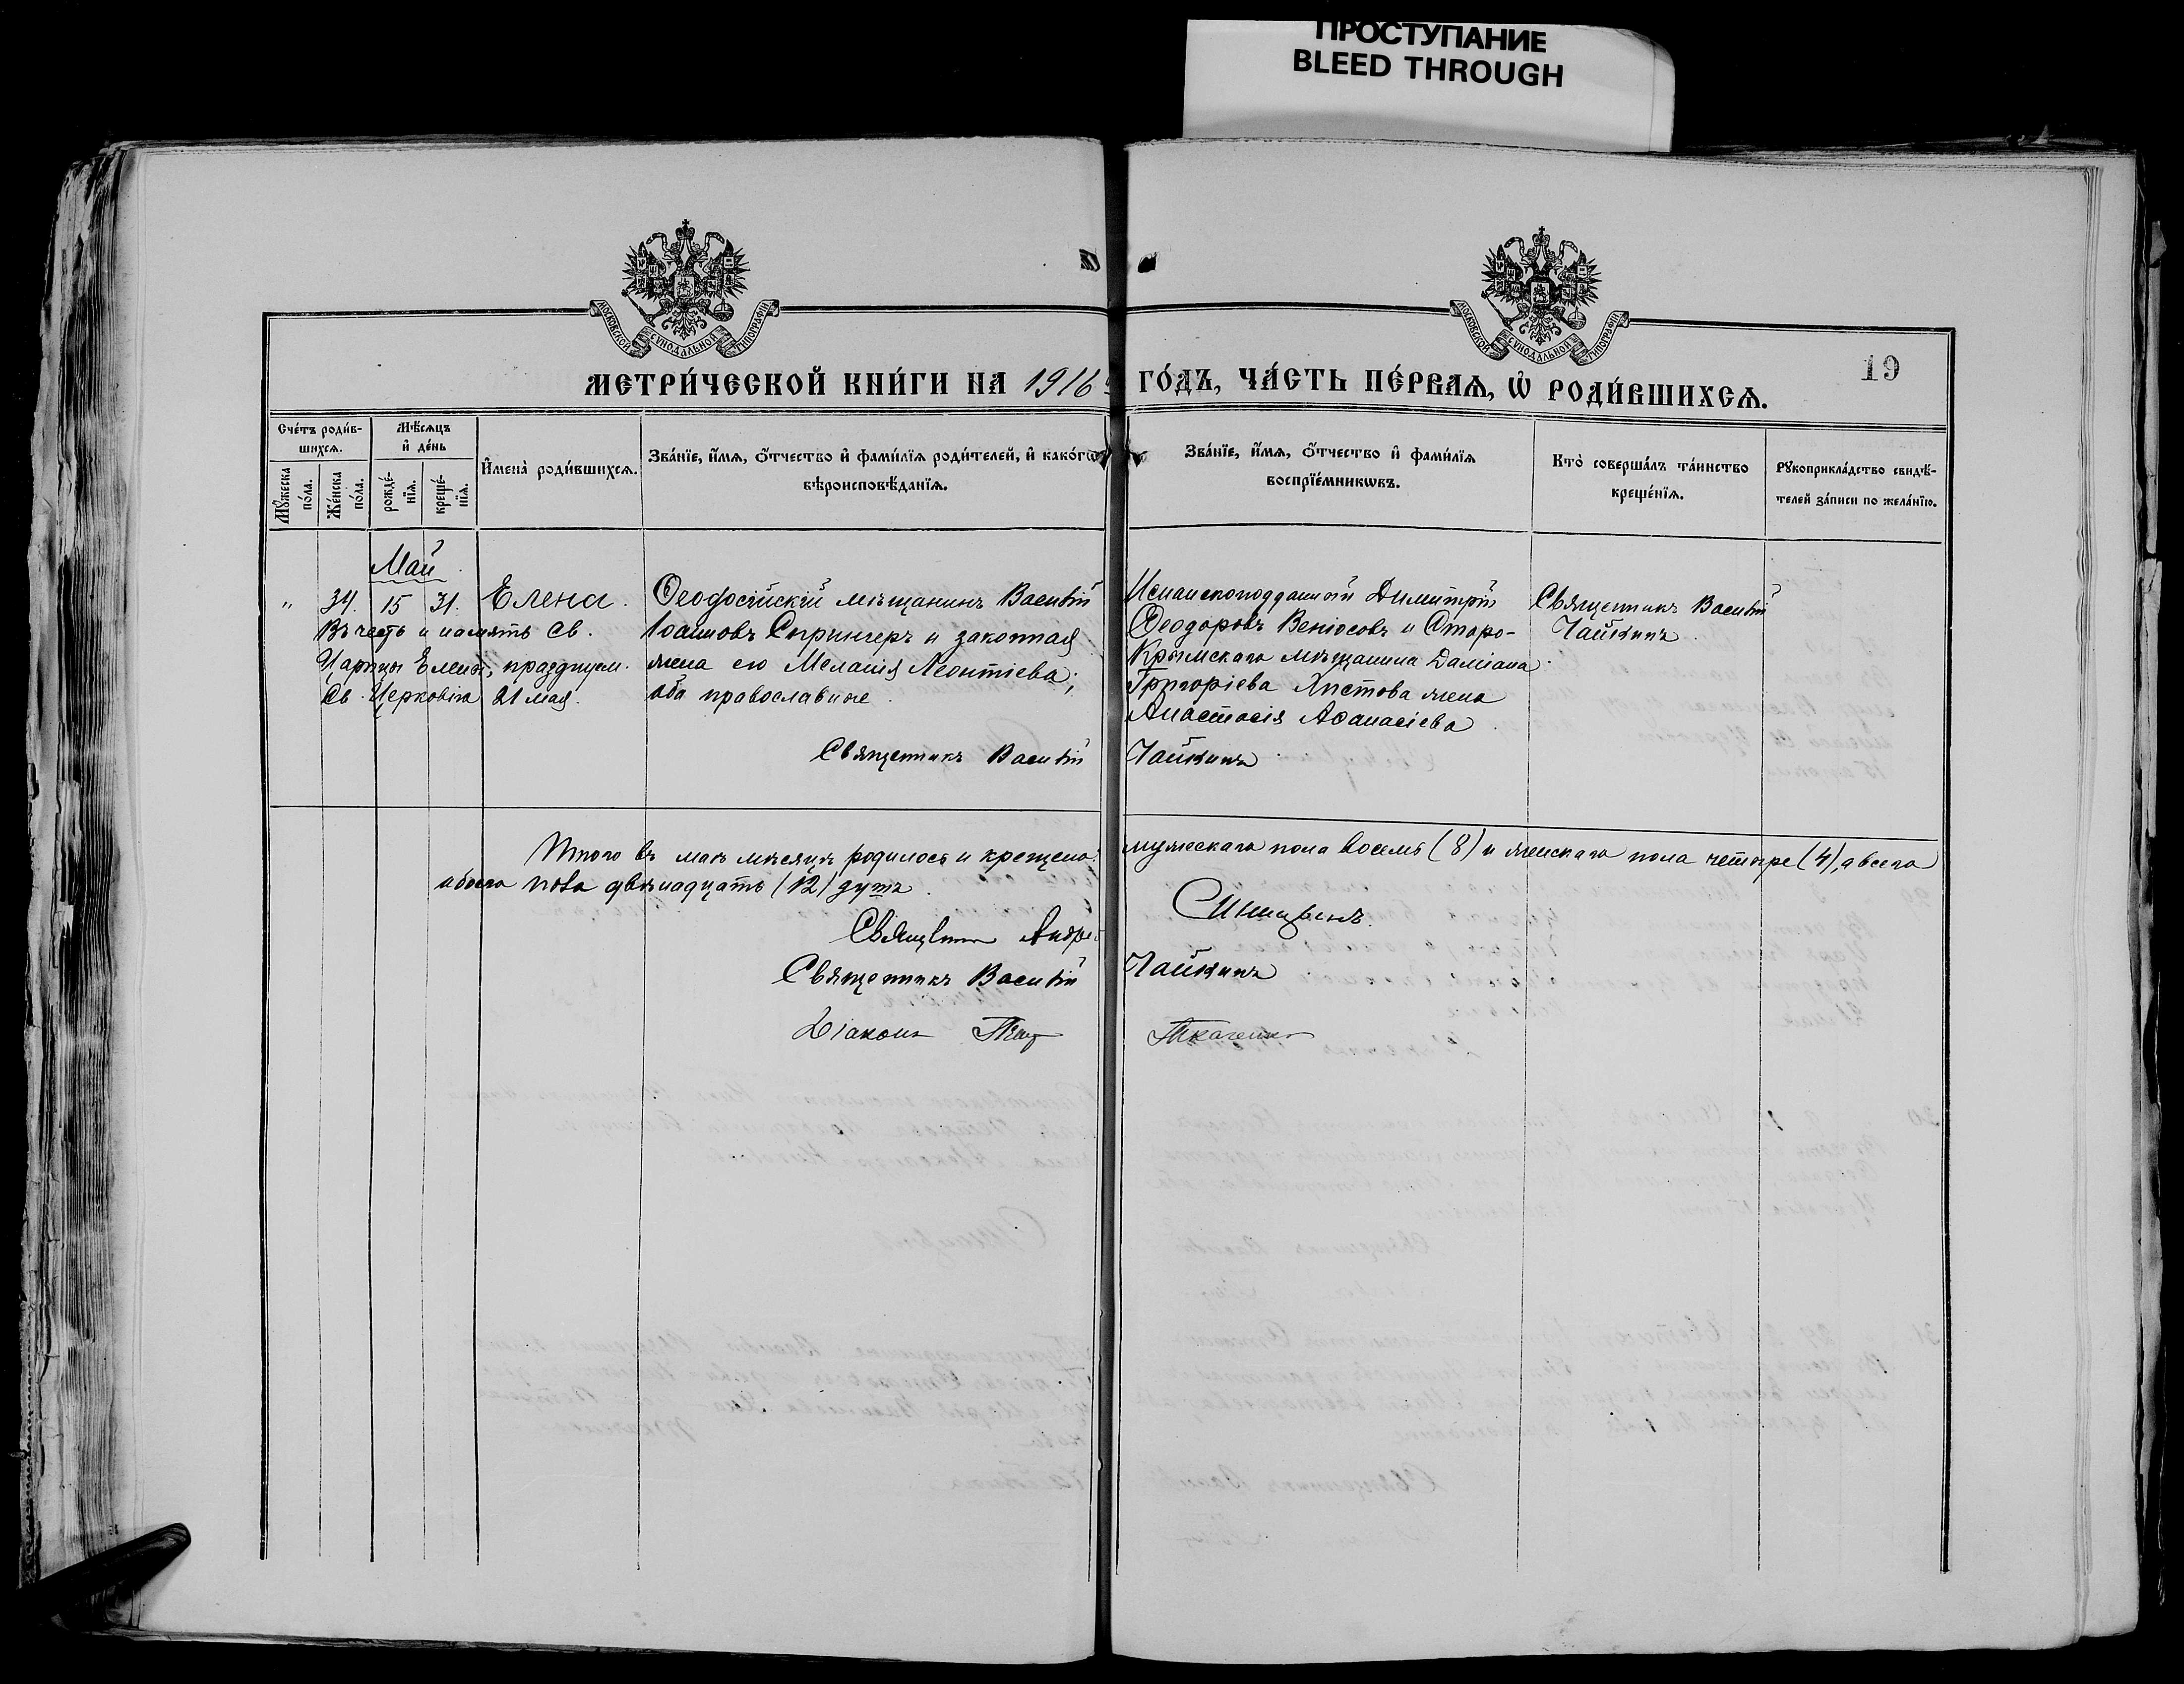 ПРОСТУПАНИЕ
BLEED THROUGH
МОСКОВСКОЙ СУНОДАЛЬНОЙ ТИПОГРАФІИ
МОСКОВСКОЙ СУНОДАЛЬНОЙ ТИПОГРАФІИ
19
МЕТРИ́ЧЕСКОЙ КНИ́ГИ НА 1916й ГО́ДЪ, ЧА́СТЬ ПЕ́РВАѦ, Ѡ҆ РОДИ́ВШИХСѦ.
Сче́тъ роди́в-
шихсѧ.
Мꙋ́жеска
по́ла.
Же́нска
по́ла.
Мѣ́сѧцъ
и҆ де́нь
рожде́-
нїѧ.
креще́-
нїѧ.
И҆мена̀ роди́вшихсѧ.
Зва́нїе, и҆́мѧ, ѻ҆́тчество и҆ фами́лїѧ роди́телей, и҆ како́гѡ
вѣроисповѣ́данїѧ.
Зва́нїе, и҆́мѧ, ѻ҆́тчество и҆ фами́лїѧ
воспрїе́мникѡвъ.
Кто̀ соверша́лъ та́инство
креще́нїѧ.
Рꙋкоприкла́дство свидѣ́-
телей за́писи по жела́нїю.
Май
" 34. 15 31. Елена.
Въ честь и память св.
Царицы Елены, празднуем.
Св. Церковію 21 мая.
Ѳеодосійскій мѣщанинъ Василій
Іоанновъ Спрингеръ и законная
жена его Меланія Леонтіева;
оба православные.
Испанскоподданный Димитрій
Ѳеодоровъ Веніосовъ и Старо-
Крымскаго мѣщанина Даміана
Григоріева Христова жена
Анастасія Аѳанасіева.
Священникъ Василій
Чайкинъ.
Священникъ Василій Чайкинъ.
Итого въ маѣ мѣсяцѣ родилось и крещено: мужескаго пола восемь (8) и женскаго пола четыре (4), а всего
обоего пола двѣнадцать (12) душъ.
Священникъ Андрей
Священникъ Василій Чайкинъ
Діаконъ Ткаченко